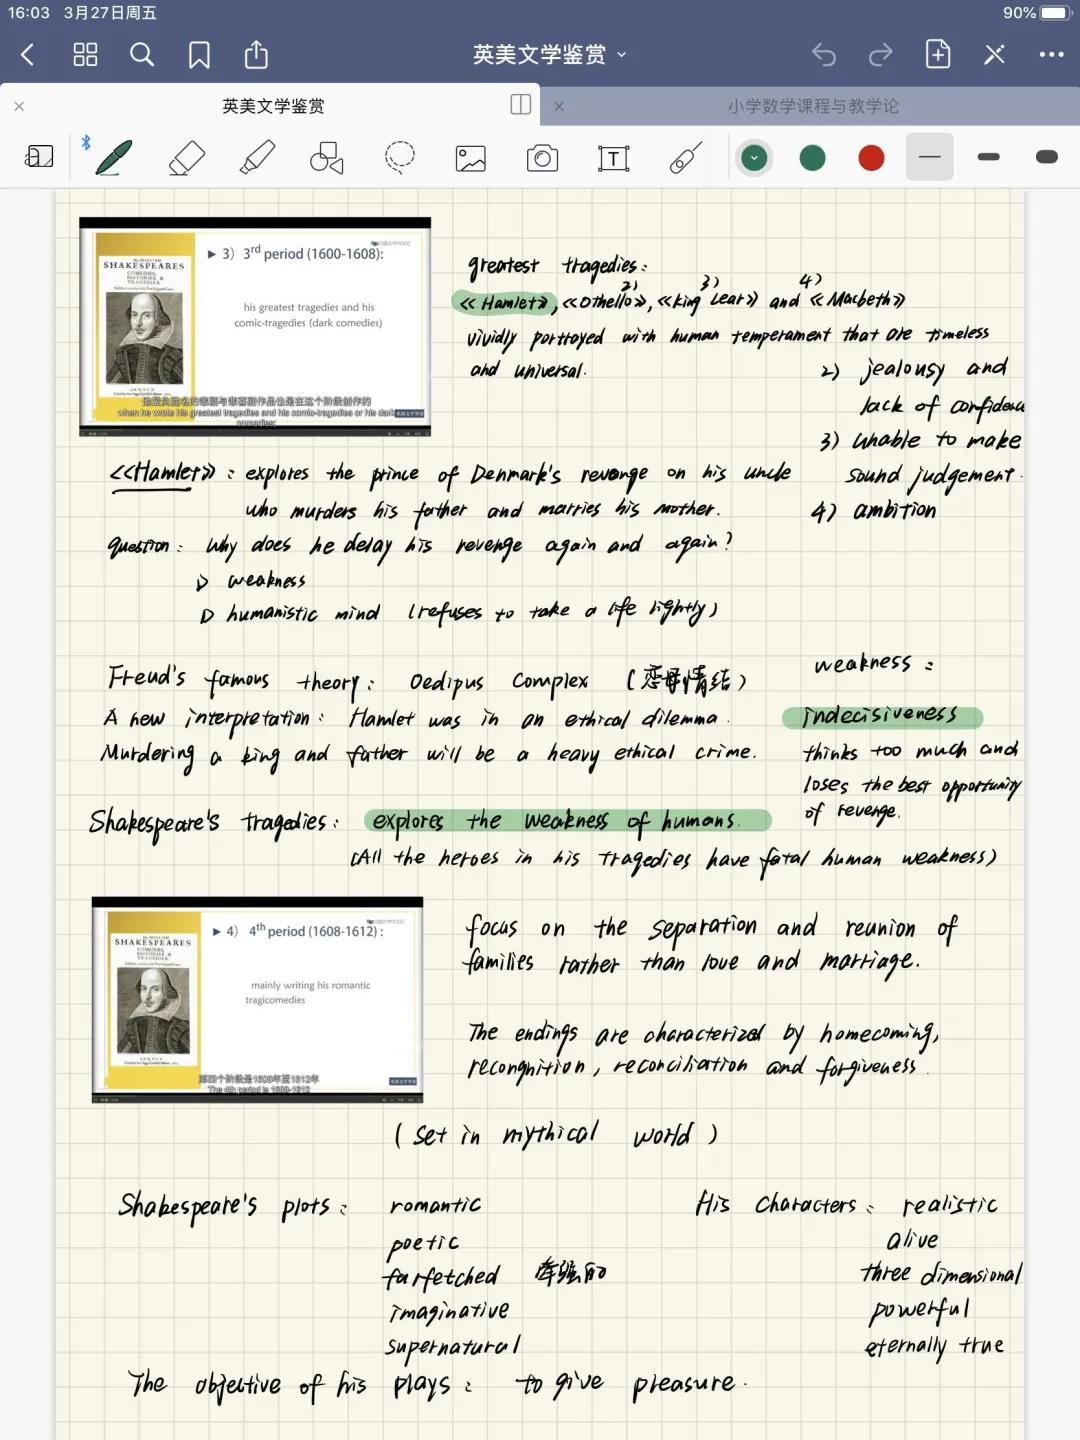 16:03 3月27日周五
90%
英美文学鉴赏
英美文学鉴赏
小学数学课程与教学论
T
3) 3rd period (1600-1608):
SHAKESPEARES
COMEDIES,
HISTORIES &
TRAGEDIES
his greatest tragedies and his
comic-tragedies (dark comedies)
when he wrote his greatest tragedies and his comic-tragedies or his dark
comedies
greatest tragedies:
2) 3) 4)
《Hamlet》,《Othello》,《King Lear》 and 《Macbeth》
vividly portrayed with human temperament that are timeless
and universal.
2) jealousy and
lack of confidence
3) unable to make
sound judgement.
4) ambition
《Hamlet》: explores the prince of Denmark's revenge on his uncle
who murders his father and marries his mother.
question: Why does he delay his revenge again and again?
weakness
humanistic mind (refuses to take a life lightly)
Freud's famous theory: Oedipus Complex (恋母情结)
A new interpretation: Hamlet was in an ethical dilemma.
Murdering a king and father will be a heavy ethical crime.
weakness:
indecisiveness
thinks too much and
loses the best opportunity
of revenge.
Shakespeare's tragedies: explores the weakness of humans.
(All the heroes in his tragedies have fatal human weakness)
4) 4th period (1608-1612):
SHAKESPEARES
COMEDIES,
HISTORIES &
TRAGEDIES
mainly writing his romantic
tragicomedies
第四个阶段是1608年至1612年
The 4th period is 1608-1612
focus on the separation and reunion of
families rather than love and marriage.
The endings are characterized by homecoming,
recongnition, reconciliation and forgiveness.
(set in mythical world)
Shakespeare's plots: romantic
poetic
farfetched 牵强的
imaginative
supernatural
His characters: realistic
alive
three dimensional
powerful
eternally true
The objective of his plays: to give pleasure.